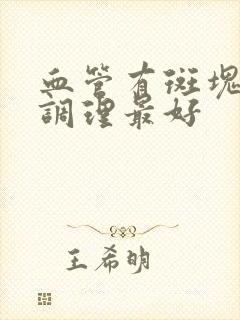 血管有斑塊
調理最好
王希明